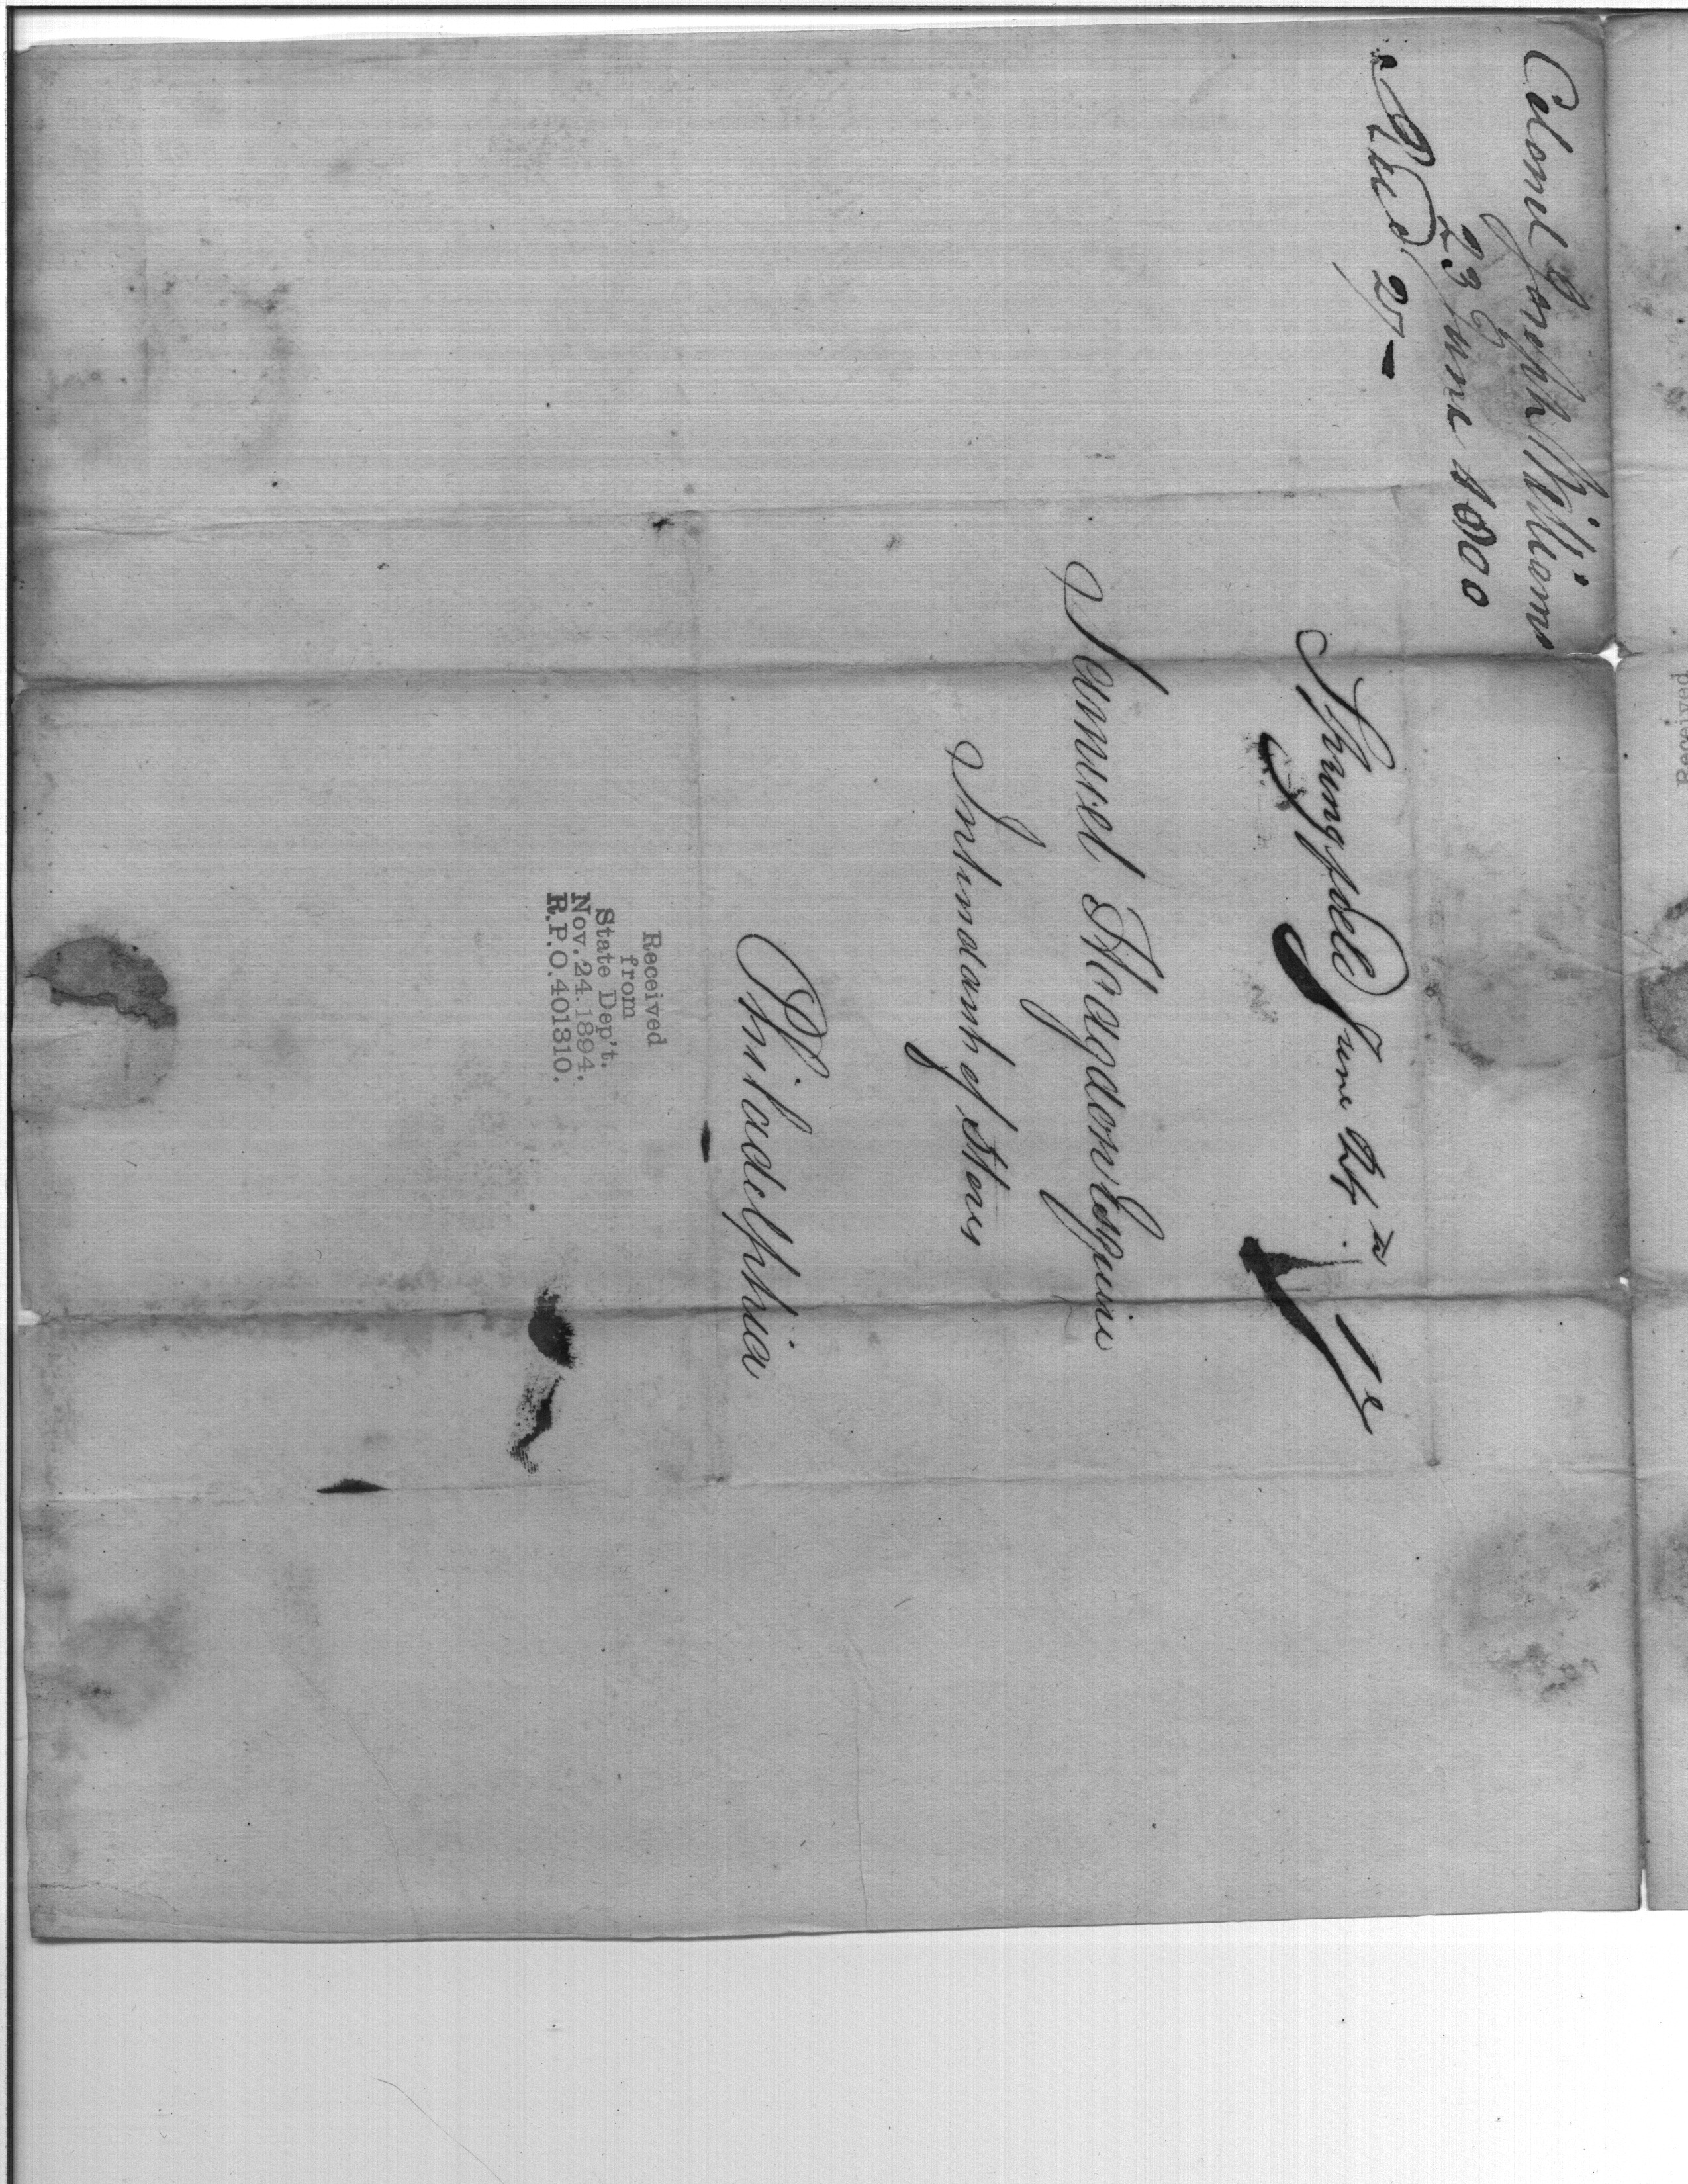 Colonel Joseph Williams
23 June 1800
Rec'd 27
Springfield June 24th 17
Samuel Hoagdon Esquire
Intendant of Stores
Philadelphia
Received
from
State Dep't.
Nov. 24. 1894.
R.P.O. 401310.
Received